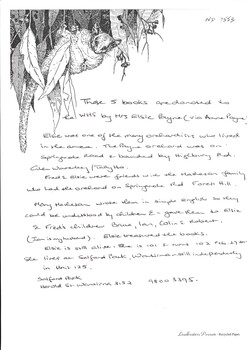 NP 7559
These 5 books are donated to
the WHS by Mrs Elsie Payne (via Anne Payne)
Elsie was one of the many orchardists who lived
in the area. The Payne orchard was on
Springvale Road & bounded by Highbury Rd.
Glen Waverley / Tally Ho.
Fred & Elsie were friends with the Matheson family
who had the orchard on Springvale Rd Forest Hill.
Mary Matheson wrote them in simple english so they
could be understood by children & gave them to Elsie
& Fred's children Bruce, Ian, Colin & Robert.
(Ian is my husband). Elsie treasured the books.
Elsie is still alive. She is 101 & turns 102 Feb. 27th
She lives at Salford Park, Wantirna still independently
in Unit 125.
Salford Park
Harold St. Wantirna 3152 9800 3795.